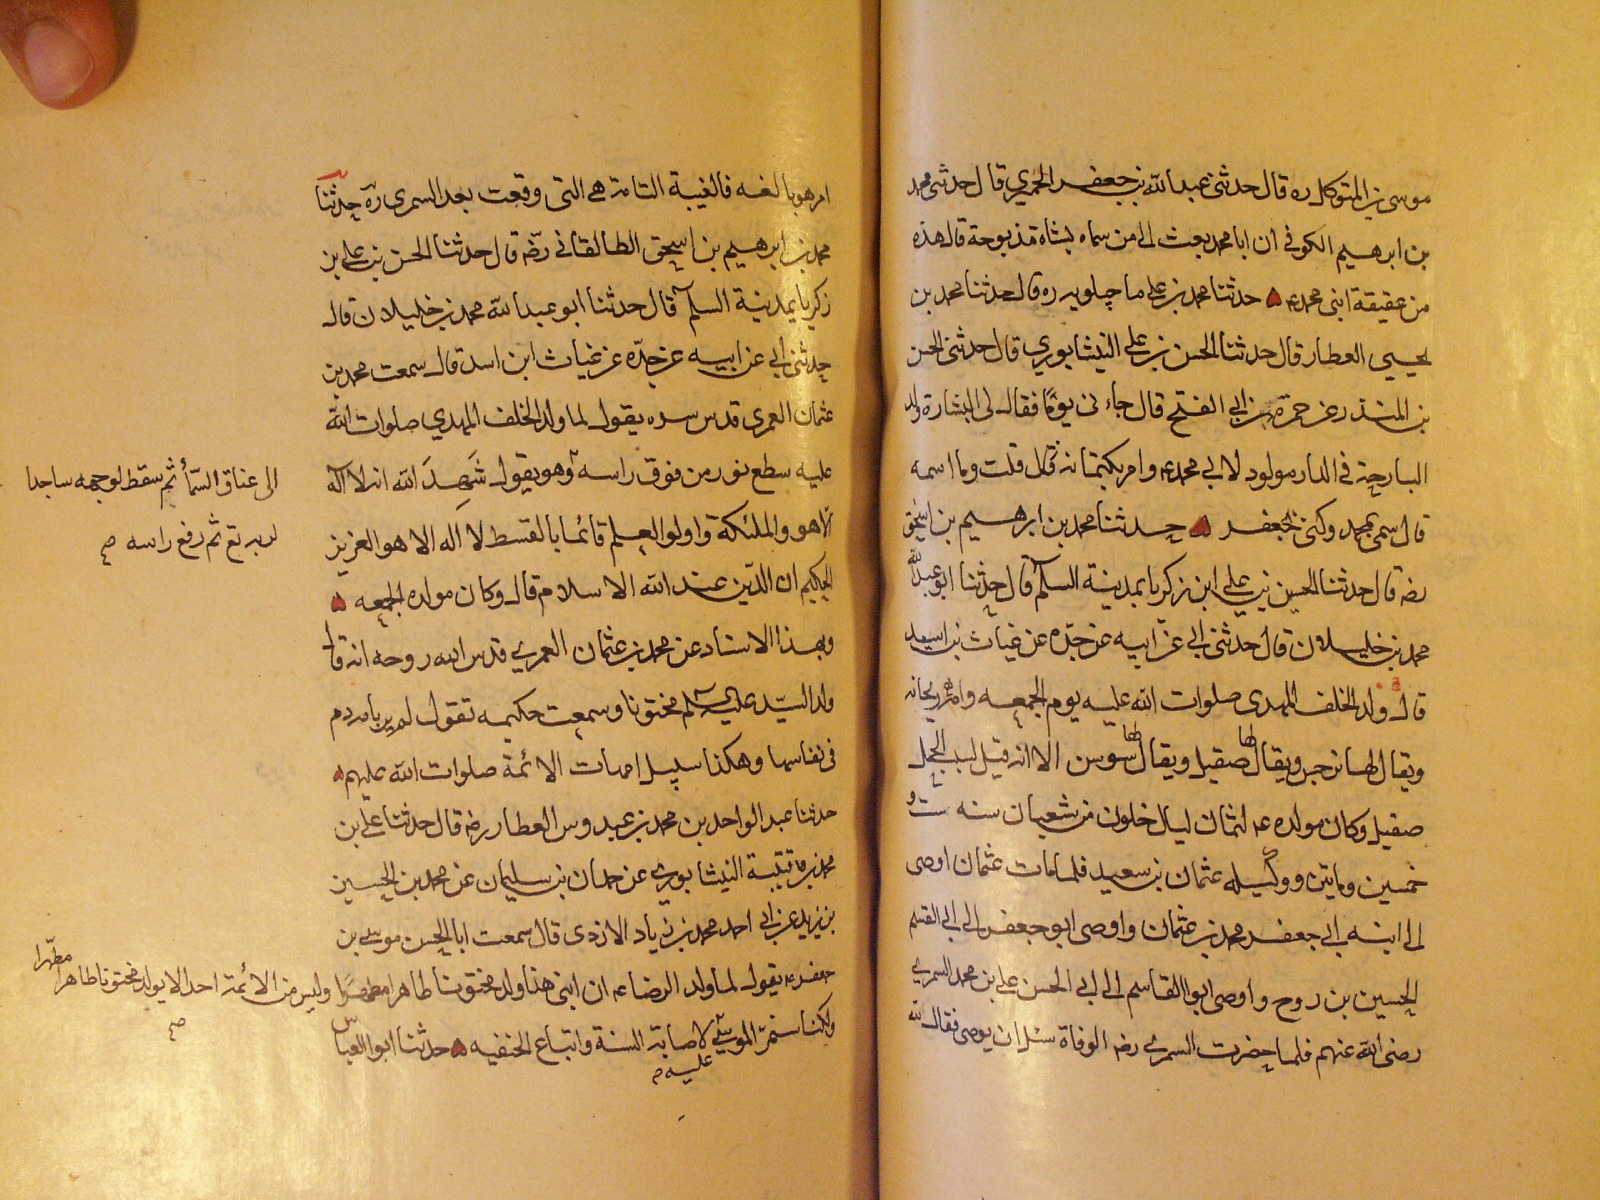 موسى بن المتوكل ره قال حدثنى عبدالله بن جعفر الحميري قال حدثنى محمد
بن ابرهيم الكوفي ان ابا محمد بعث الى من سماه بشاة مذبوحة قال هذه
من عقيقة ابنى محمد حدثنا محمد بن على ماجيلويه ره قال حدثنا محمد بن
يحيى العطار قال حدثنا الحسن بن على النيشابوري قال حدثنى الحسن
بن المنذر عن حمزة بن ابى الفتح قال جاءنى يوما فقال لى البشارة ولد
البارحة فى الدار مولود لابى محمد ع وامر بكتمانه قال قلت وما اسمه
قال سمى بمحمد وكنى بجعفر حدثنا محمد بن ابرهيم بن اسحق
رضه قال حدثنا الحسين بن على ابن زكريا بمدينة السلم قال حدثنا ابو عبدالله
محمد بن خليلان قال حدثنى ابى عن ابيه عن جده عن غياث بن اسيد
قال ولد الخلف المهدى صلوات الله عليه يوم الجمعه وامه ريحانه
ويقال لها نرجس ويقال لها صقيل ويقال لها سوسن الا انه قيل لسبب الحمل
صقيل وكان مولده ع لثمان ليال خلون من شعبان سنه ست و
خمسين وماتين ووكيله عثمان بن سعيد فلما مات عثمان اوصى
الى ابنه ابى جعفر محمد بن عثمان واوصى ابو جعفر الى ابى القسم
الحسين بن روح واوصى ابوالقاسم الى ابى الحسن على بن محمد السمري
رضى الله عنهم فلما حضرت السمري رضه الوفاة سئل ان يوصى فقال لله
امر هو بالغه فالغيبة التامة هى التى وقعت بعد السمرى ره حدثنا
محمد بن ابرهيم بن اسحق الطالقانى رضه قال حدثنا الحسن بن على بن
زكريا بمدينة السلم قال حدثنا ابو عبدالله محمد بن خليلان قال
حدثنى ابى عن ابيه عن جده عن غياث ابن اسد قال سمعت محمد بن
عثمان العمرى قدس سره يقول لما ولد الخلف المهدي صلوات الله
عليه سطع نور من فوق راسه وهو يقول شَهِدَ الله انه لا اله
الا هو والملئكة واولوا العلم قائما بالقسط لا اله الا هو العزيز
الحكيم ان الدين عند الله الاسلام قال وكان مولده الجمعه
وبهذا الاسناد عن محمد بن عثمان العمري قدس الله روحه انه قال
ولد السيد عليه السلم مختونا وسمعت حكيمه تقول لم ير بامه دم
فى نفاسها وهكذا سبيل امهات الائمة صلوات الله عليهم
حدثنا عبد الواحد بن محمد بن عبدوس العطار رضه قال حدثنا على بن
محمد بن قتيبة النيشابوري عن حمدان بن سليمان عن محمد بن الحسين
بن زيد عن ابى احمد محمد بن زياد الازدى قال سمعت ابا الحسن موسى بن
جعفر ع يقول لما ولد الرضا ع ان ابنى هذا ولد مختونا طاهرا مطهرا وليس من الائمة احد الا يولد مختونا طاهرا مطهرا
ولكنا سنمر الموسى عليه لاصابة السنة واتباع الحنفيه حدثنا ابوا العباس
الى عنان السماء ثم سقط لوجهه ساجدا
لربه تع ثم رفع راسه صح